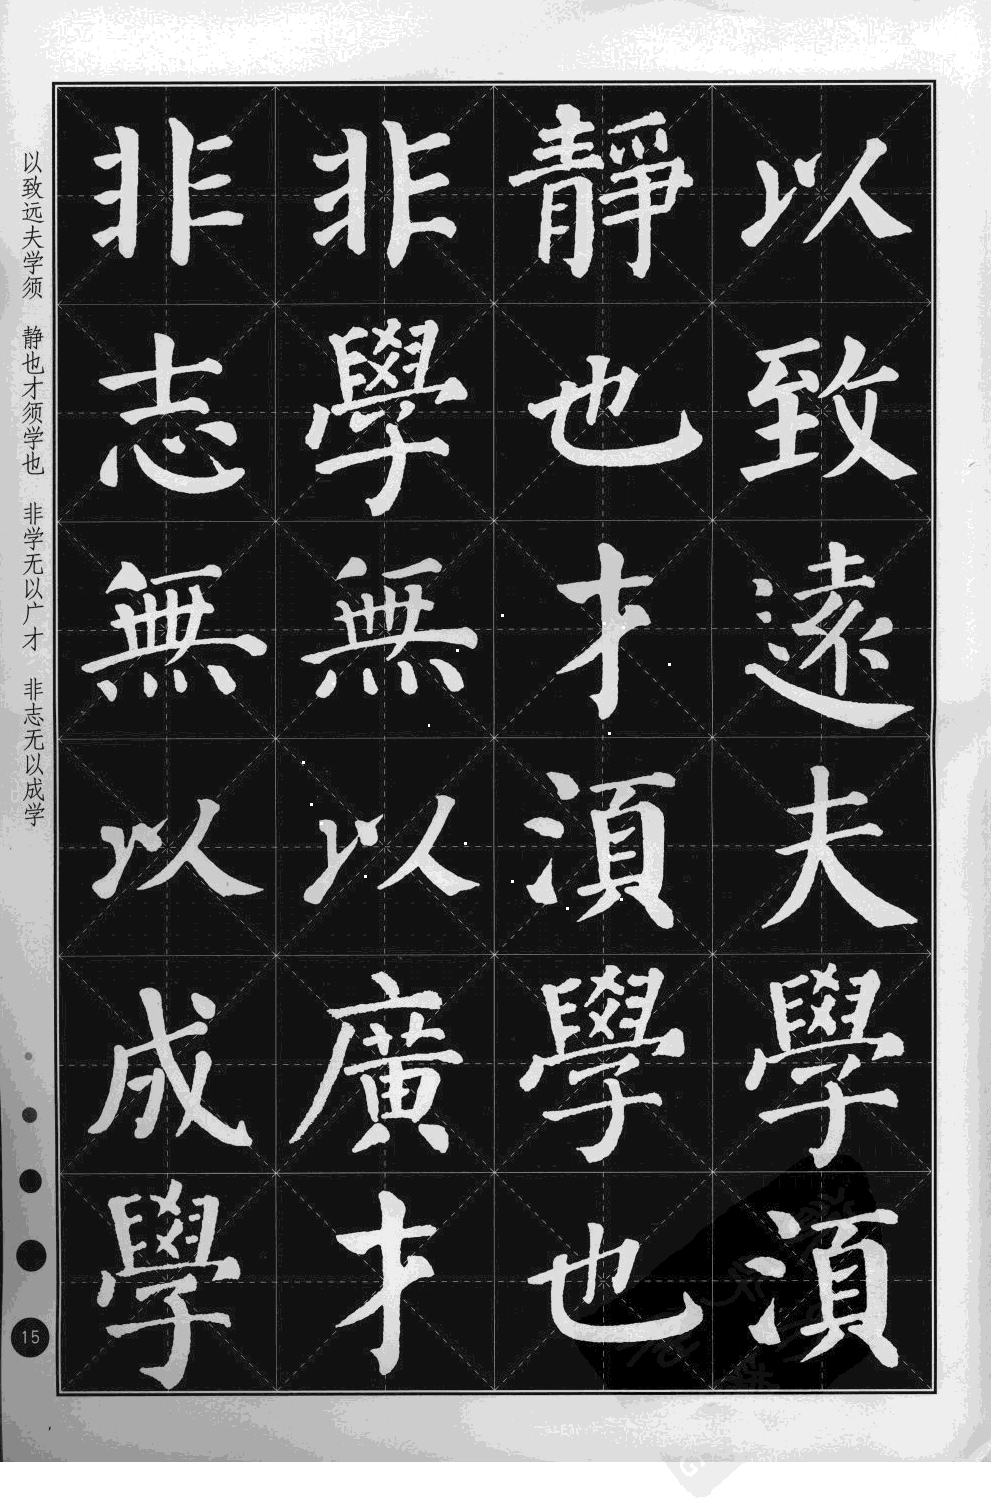 以致遠夫學湏
靜也才湏學也
非學無以廣才
非志無以成學
以致远夫学须 静也才须学也 非学无以广才 非志无以成学
15